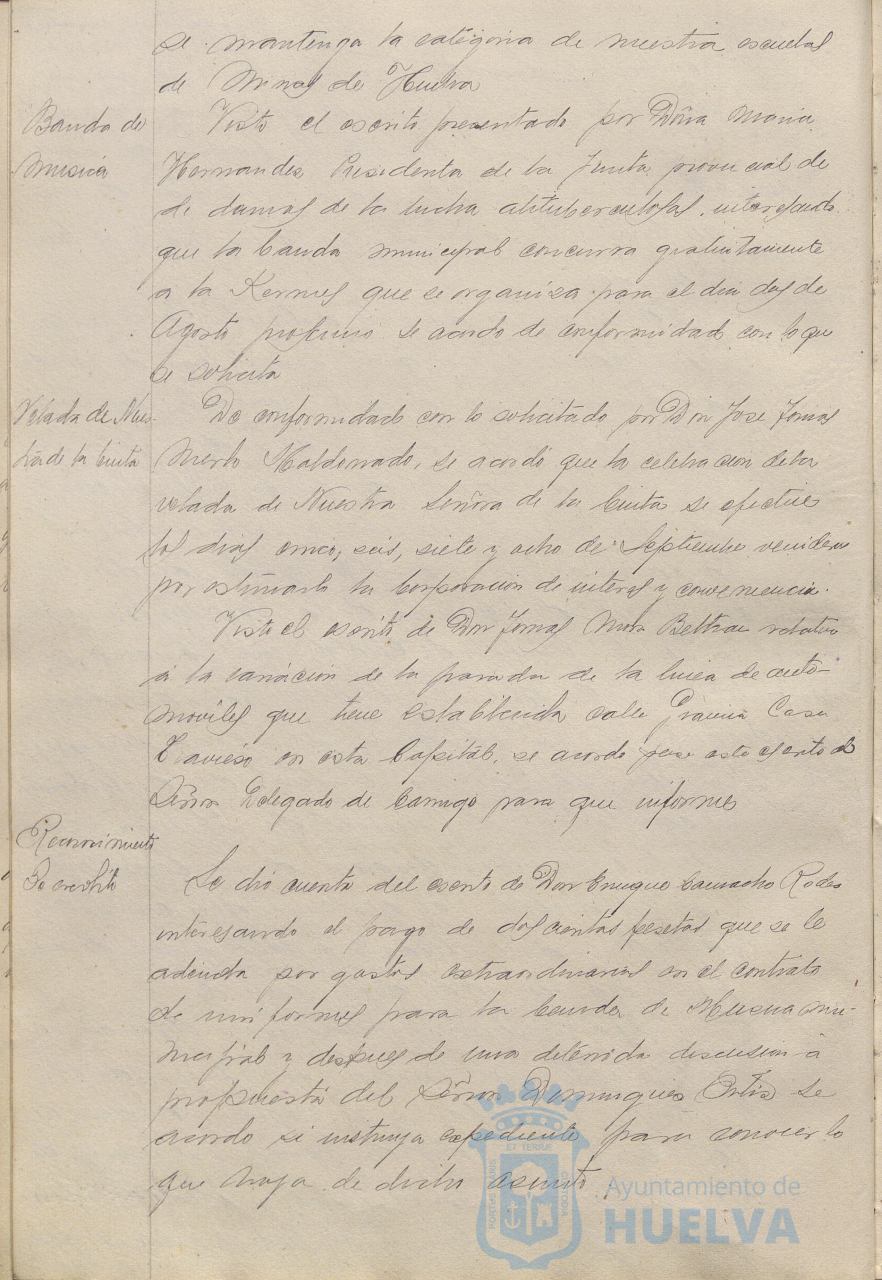 se mantenga la categoria de nuestra escuelas
de Minas de Huelva
Banda de
Musica
Visto el escrito presentado por Doña Maria
Hernandez Presidenta de la Junta provincial de
de damas de la lucha atituberculosas, interesando
que la banda municipal concurra gratuitamente
a la Kermes que se organiza para el dia dos de
Agosto proximo se acordo de conformidad con lo que
se solicita
Velada de Nues-
tra de la Cinta
De conformidad con lo solicitado por Don Jose Tomas
Merlo Maldonado, se acordó que la celebracion de la
velada de Nuestra Señora de la Cinta se efectue
los dias cinco, seis, siete y ocho de Septiembre venidero
por estimarlo la Corporacion de interes y conveniencia.
Visto el escrito de Don Tomas Mora Beltran relativo
á la variacion de la parada de la linea de auto-
moviles que tiene establecida calle Gravina Casa
en esta Capital, se acordo pase este escrito al
Señor Delegado de Camigo para que informe
Reconocimiento
De credito
Se dio cuenta del escrito de Don Enrique Camacho Rodes
interesando el pago de doscientas pesetas que se le
adeuda por gastos extraordinarios en el contrato
de uniformes para la banda de Musica mu-
nicipal y despues de una detenida discusion a
propuesta del Señor Dominguez Ortiz se
acordo si instruya expediente para conocer lo
que haya de dicho asunto.
PORTUS MARIS
ET TERRÆ
CUSTODIA
Ayuntamiento de
HUELVA